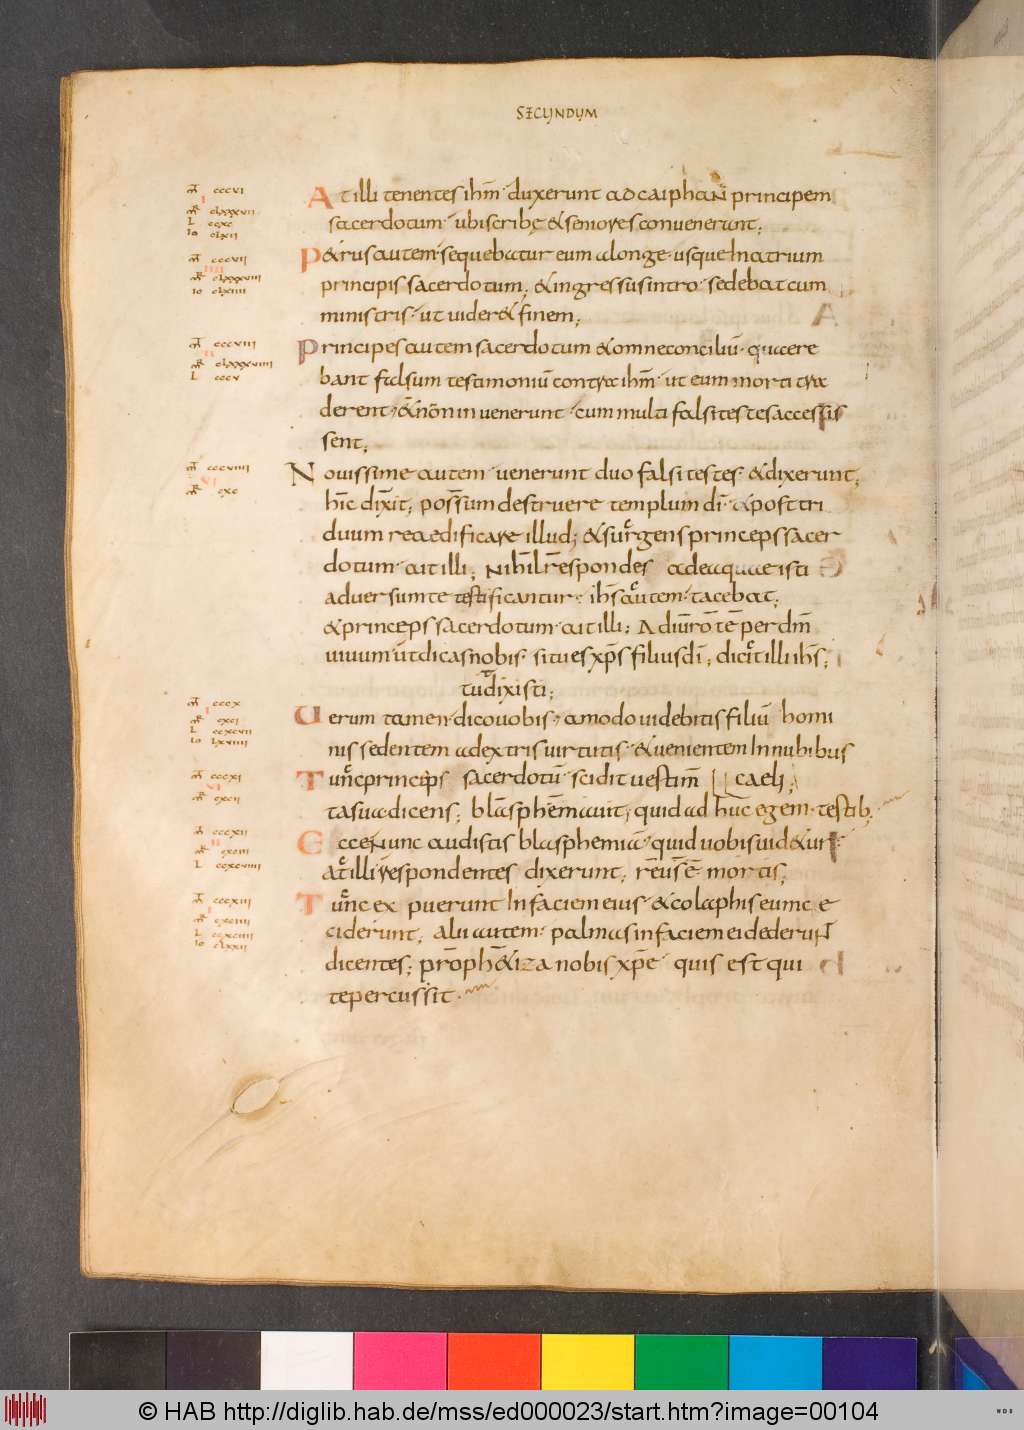 SECUNDUM
mͭ cccvi
mͬ clxxxvii
L ccxc
io clxii
Atilli tenentes ihm̄ duxerunt adcaiphan principem
sacerdotum ubi scribę &seniores convenerunt;
mͭ cccvii
mͬ clxxxviii
io clxiii
P&rus autem sequebatur eum alonge usque In atrium
principis sacerdotum; &ingressus intro sedebat cum
ministris ut uider& finem;
mͭ cccviii
mͬ clxxxviiii
L cccv
Principes autem sacerdotum &omne conciliū quaere
bant falsum testimoniū contra ihm̄ ut eum morti tra
derent &nōn invenerunt cum multi falsi testes accessis
sent;
mͭ cccviiii
mͬ cxc
Novissime autem venerunt duo falsi testes &dixerunt;
hīc dixit; possum destruere templum dī &post tri
duum reaedificare illud; &surgens princeps sacer
dotum ait illi; Nihil respondes adea quae isti
adversum te testificantur; ihs̄ autem tacebat;
&princeps sacerdotum ait illi; Adiuro te per dm̄
uiuum ut dicas nobis situ es xps̄ filius dī; dicit illi ihs̄;
tu dixisti;
mͭ cccx
mͬ cxci
L ccxcvii
io lxviiii
Uerum tamen dico uobis amodo uidebitis filiū homi
nis sedentem adextris uirtutis &uenientem In nubibus
mͭ cccxi
mͬ cxcii
Tunc princeps sacerdotū scidit uestim̄ caeli;
ta sua dicens; blasphemauit; quid ad huc egem testib;
mͭ cccxii
mͬ cxciii
L ccxcviiii
Ecce Nunc audistis blasphemiā quid uobis uid&ur
at illi respondentes dixerunt; reus ē mortis;
mͭ cccxiii
mͬ cxciiii
io clxxii
Tunc ex puerunt In faciem eius &colaphis eum c e
ciderunt; alii autem palmas in faciem ei dederunt
dicentes; proph&iza nobis xpe quis est qui
te percussit
© HAB http://diglib.hab.de/mss/ed000023/start.htm?image=00104